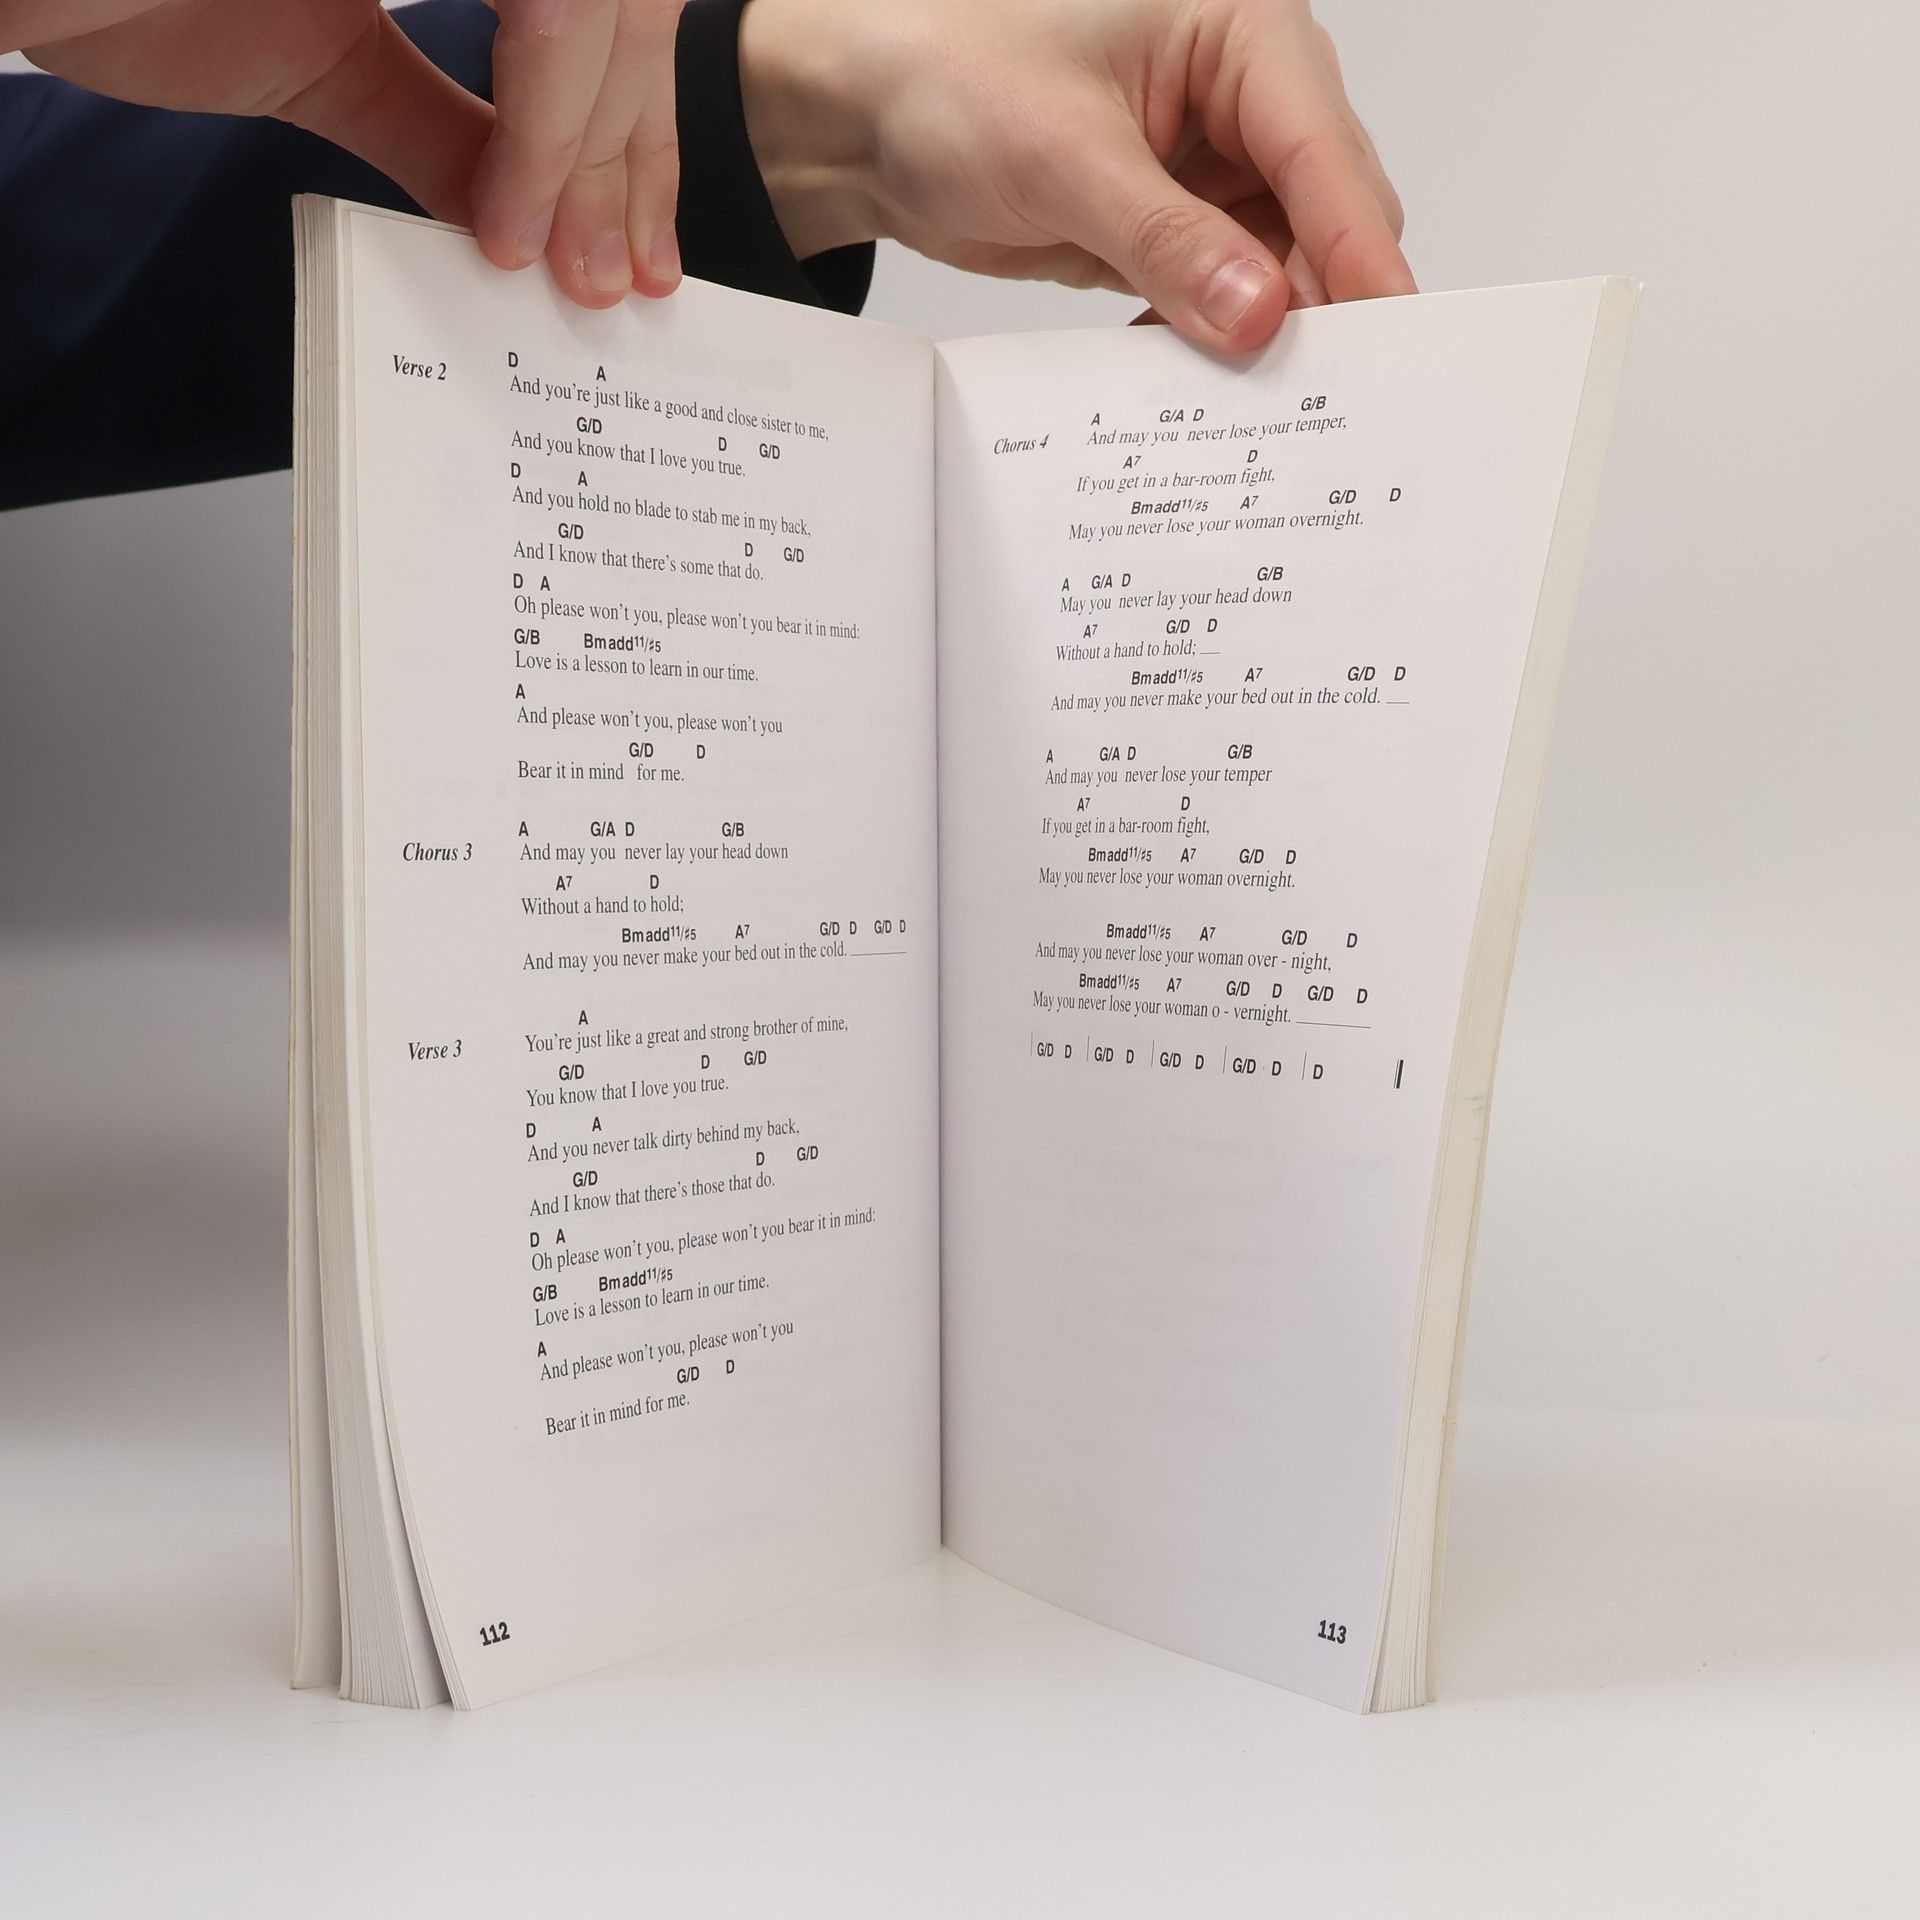 Verse 2
D A
And you're just like a good and close sister to me,
G/D D G/D
And you know that I love you true.
D A
And you hold no blade to stab me in my back,
G/D D G/D
And I know that there's some that do.
D A
Oh please won't you, please won't you bear it in mind:
G/B Bmadd11/♯5
Love is a lesson to learn in our time.
A
And please won't you, please won't you
G/D D
Bear it in mind for me.
A G/A D G/B
Chorus 3 And may you never lay your head down
A7 D
Without a hand to hold;
Bmadd11/♯5 A7 G/D D G/D D
And may you never make your bed out in the cold.
A
Verse 3 You're just like a great and strong brother of mine,
G/D D G/D
You know that I love you true.
D A
And you never talk dirty behind my back,
G/D D G/D
And I know that there's those that do.
D A
Oh please won't you, please won't you bear it in mind:
G/B Bmadd11/♯5
Love is a lesson to learn in our time.
A
And please won't you, please won't you
G/D D
Bear it in mind for me.
112
A G/A D G/B
Chorus 4 And may you never lose your temper,
A7 D
If you get in a bar-room fight,
Bmadd11/♯5 A7 G/D D
May you never lose your woman overnight.
A G/A D G/B
May you never lay your head down
A7 G/D D
Without a hand to hold;
Bmadd11/♯5 A7 G/D D
And may you never make your bed out in the cold.
A G/A D G/B
And may you never lose your temper
A7 D
If you get in a bar-room fight,
Bmadd11/♯5 A7 G/D D
May you never lose your woman overnight.
Bmadd11/♯5 A7 G/D D
And may you never lose your woman over - night,
Bmadd11/♯5 A7 G/D D G/D D
May you never lose your woman o - vernight.
| G/D D | G/D D | G/D D | G/D D | D ‖
113